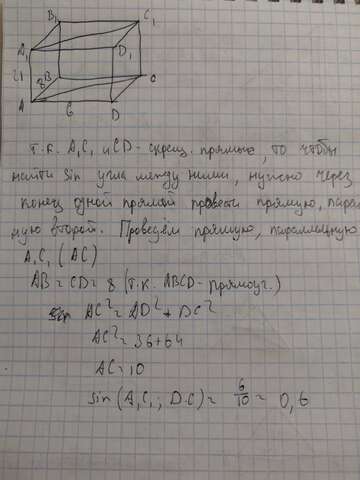 B₁ C₁
A₁ D₁
21 8 B C
A 6 D
т.к. A₁C₁ и CD - скрещ. прямые, то чтобы
найти sin угла между ними, нужно через
конец одной прямой провести прямую, парал
ную второй. Проведём прямую, параллельную
A₁C₁ (AC)
AB = CD = 8 (т.к. ABCD - прямоуг.)
AC² = AD² + DC²
AC² = 36+64
AC = 10
sin (A₁C₁; DC) = 6/10 = 0,6